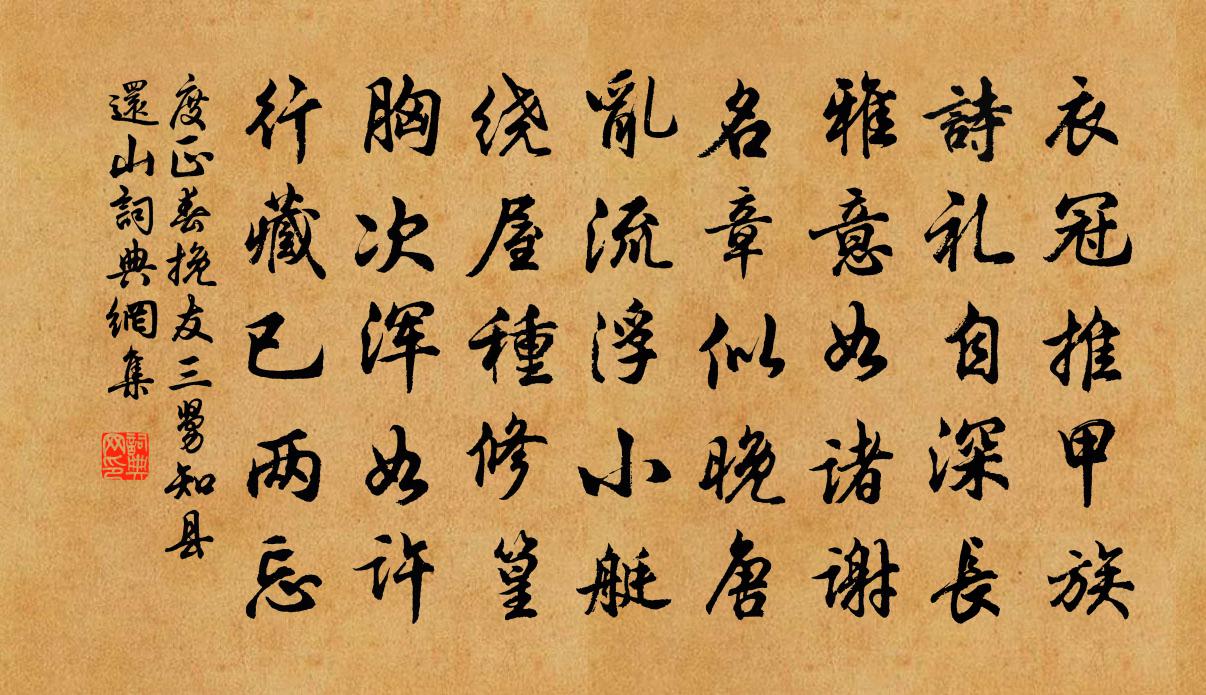 衣冠推甲族
詩礼自深長
雅意如諸謝
名章似晚唐
亂流浮小艇
绕屋種修篁
胸次浑如许
行藏已两忘
度正春挽友三舅知县
還山詞典網集
詞典网印